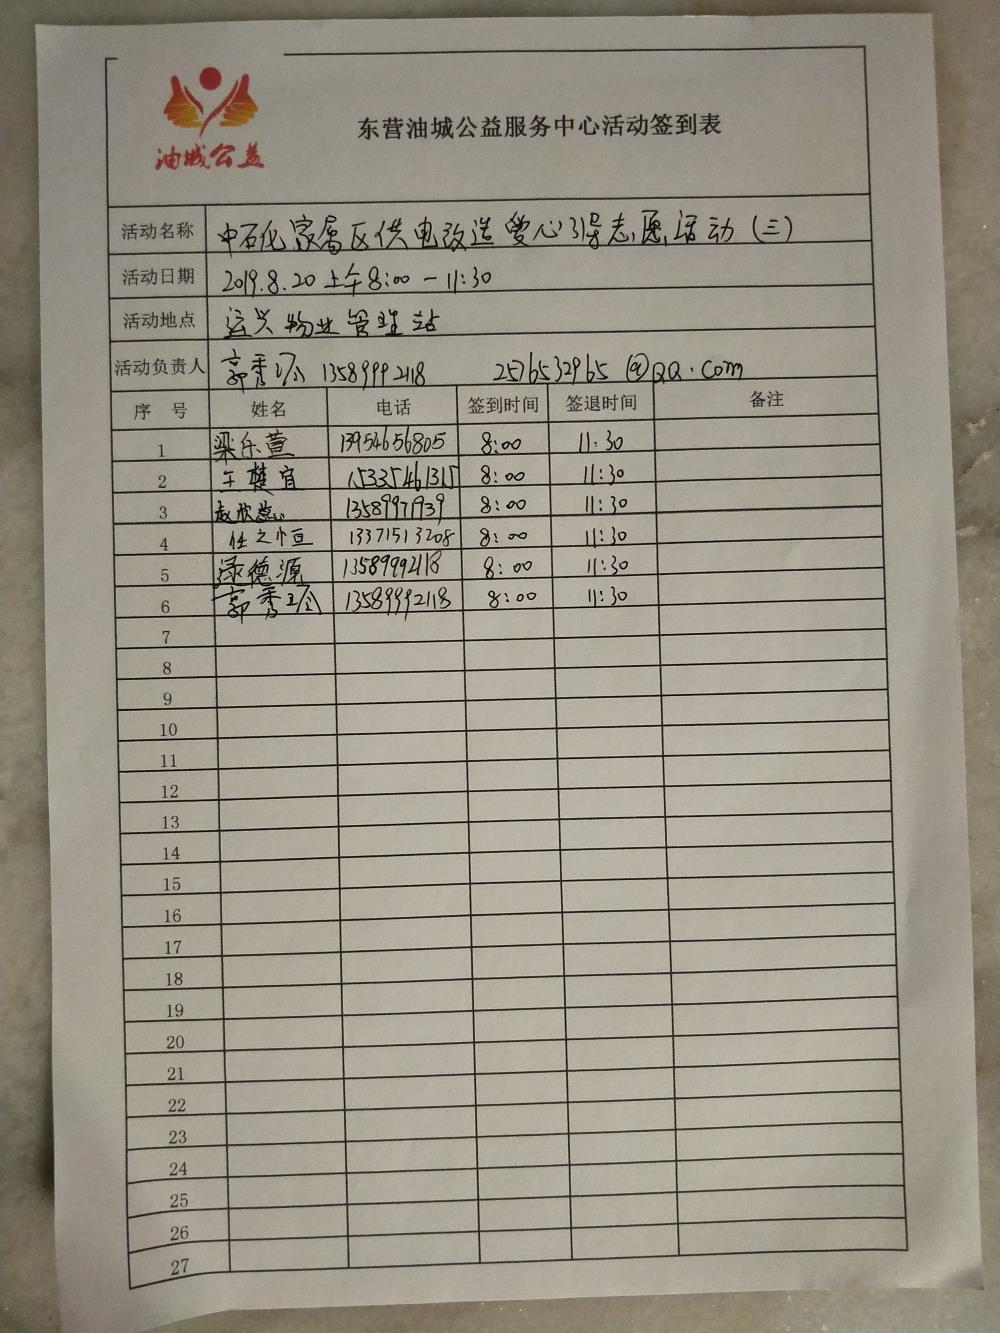 油城公益
东营油城公益服务中心活动签到表
活动名称 中石化家属区供电改造爱心引导志愿活动(三)
活动日期 2019.8.20 上午8:00-11:30
活动地点 运兴物业管理站
活动负责人 郭秀玲 13589992118 2576532965@QQ.com
序号 姓名 电话 签到时间 签退时间 备注
1 梁乐萱 13954656805 8:00 11:30
2 王楚宜 15335461315 8:00 11:30
3 赵欣蕊 13589971939 8:00 11:30
4 任之恒 13371513208 8:00 11:30
5 德源 13589992118 8:00 11:30
6 郭秀玲 13589992118 8:00 11:30
7
8
9
10
11
12
13
14
15
16
17
18
19
20
21
22
23
24
25
26
27